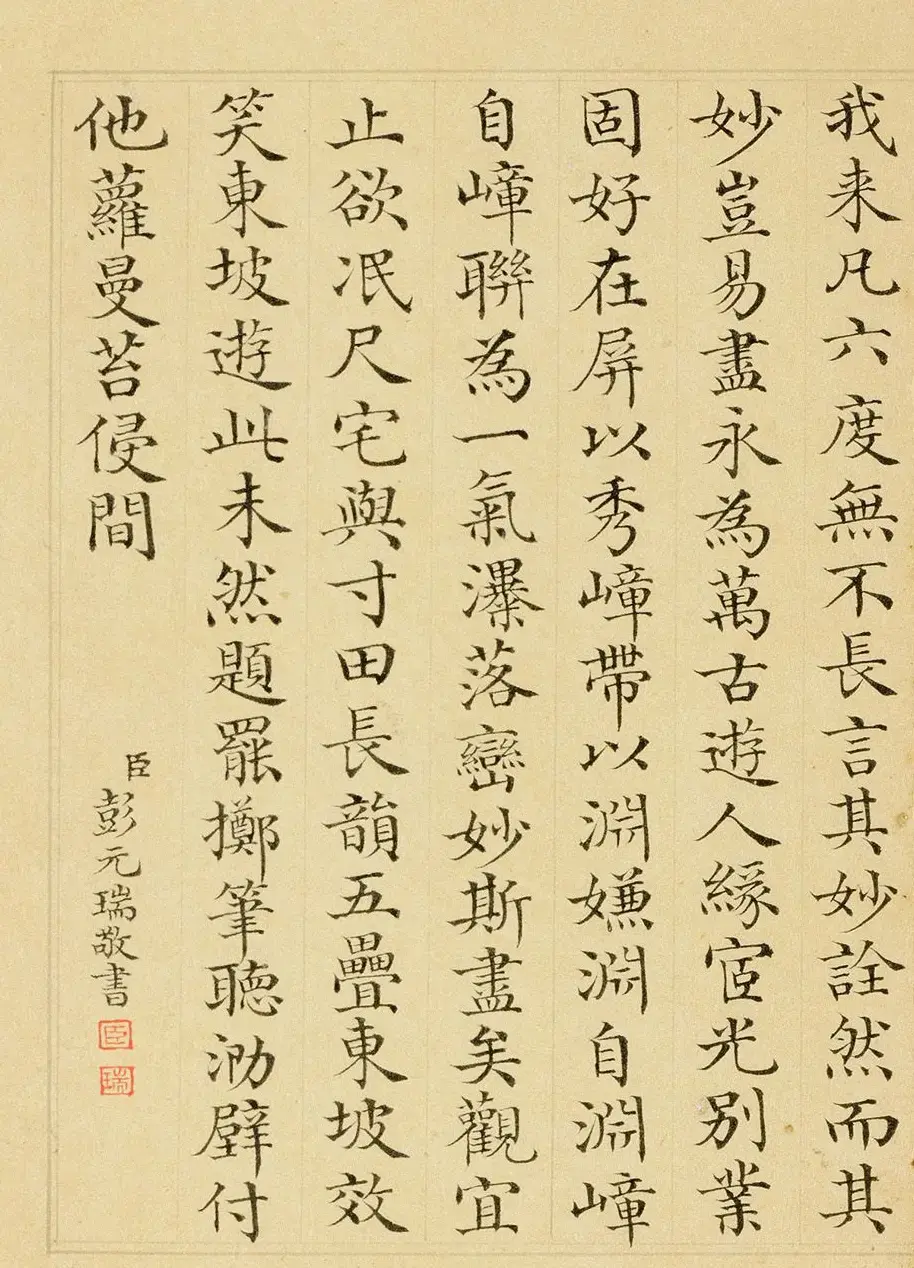 我来凡六度無不長言其妙詮然而其
妙豈易盡永為萬古遊人緣宧光別業
固好在屏以秀嶂帶以淵嫌淵自淵嶂
自嶂聯為一氣瀑落巒妙斯盡矣觀宜
止欲泯尺宅與寸田長韻五疊東坡效
笑東坡遊此未然題罷擲筆聽泐壁付
他蘿曼苔侵間
臣彭元瑞敬書
臣
瑞